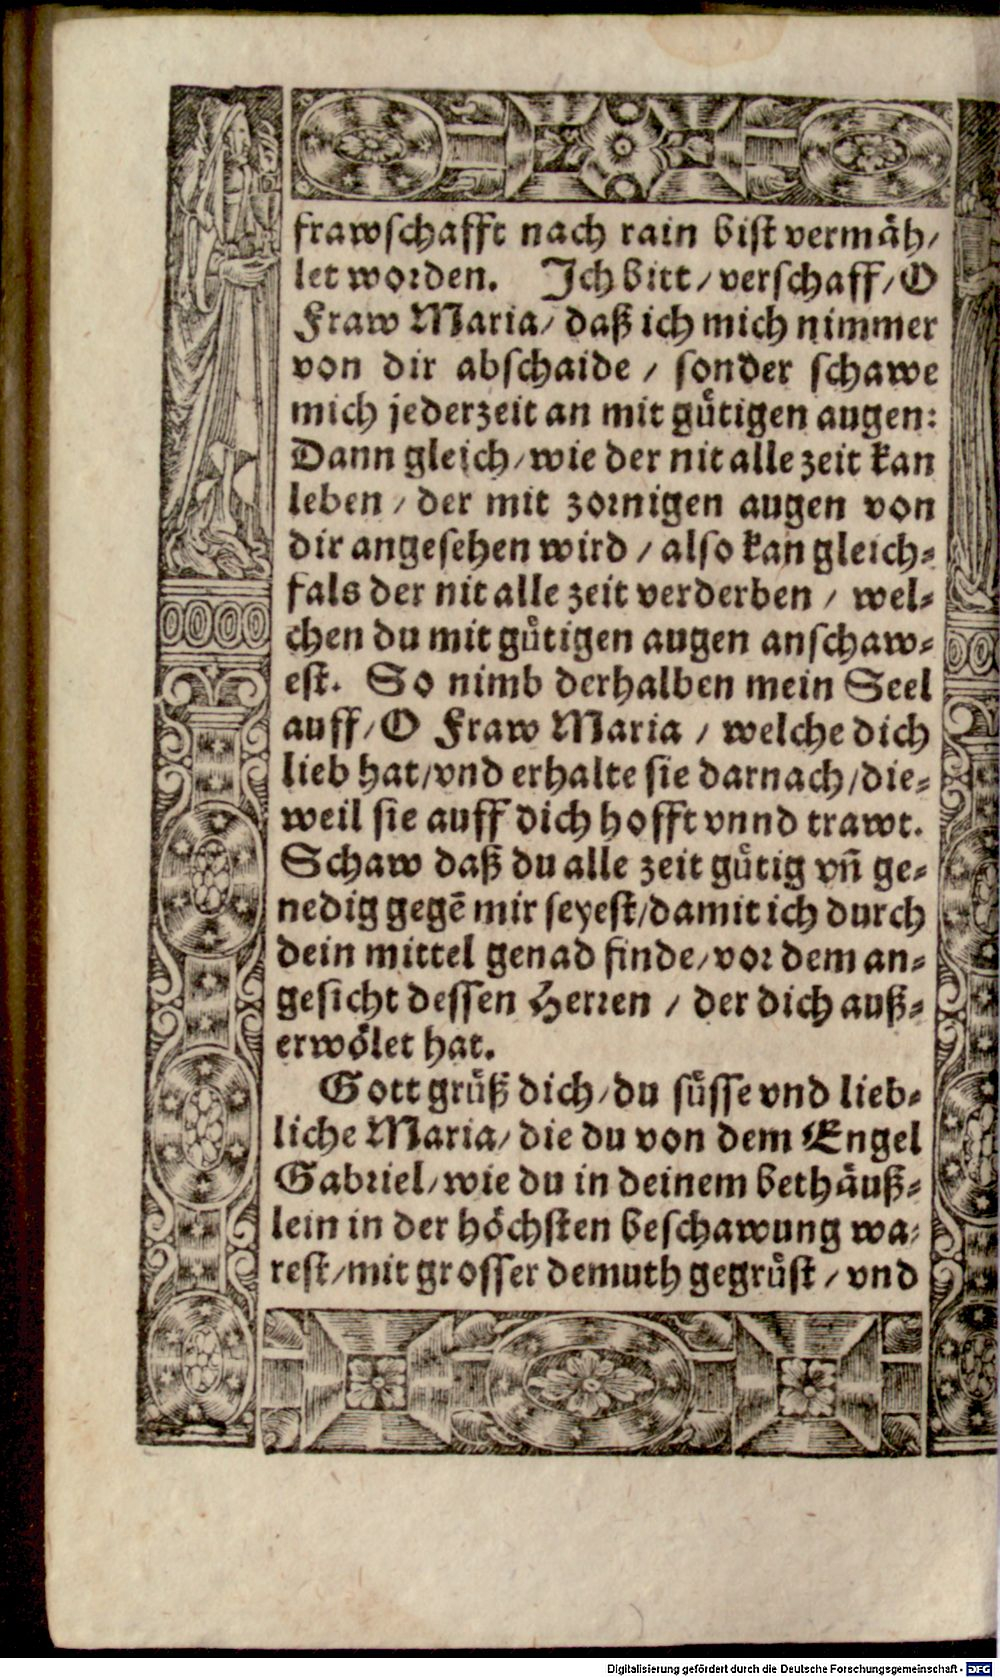 frawschafft nach rain bist vermäh/
let worden. Ich bitt/ verschaff/ O
Fraw Maria/ daß ich mich nimmer
von dir abschaide / sonder schawe
mich jederzeit an mit guͤtigen augen:
Dann gleich/ wie der nit alle zeit kan
leben / der mit zornigen augen von
dir angesehen wird / also kan gleich⸗
fals der nit alle zeit verderben / wel⸗
chen du mit guͤtigen augen anschaw⸗
est. So nimb derhalben mein Seel
auff/ O Fraw Maria / welche dich
lieb hat/ vnd erhalte sie darnach/ die⸗
weil sie auff dich hofft vnnd trawt.
Schaw daß du alle zeit guͤtig vñ ge⸗
nedig gegẽ mir seyest/ damit ich durch
dein mittel genad finde/ vor dem an⸗
gesicht dessen Herren / der dich auß⸗
erwoͤlet hat.
Gott gruͤß dich/ du suͤsse vnd lieb⸗
liche Maria/ die du von dem Engel
Gabriel/ wie du in deinem bethäuß⸗
lein in der hoͤchsten beschawung wa⸗
rest/ mit grosser demuth gegruͤst / vnd
Digitalisierung gefördert durch die Deutsche Forschungsgemeinschaft - DFG